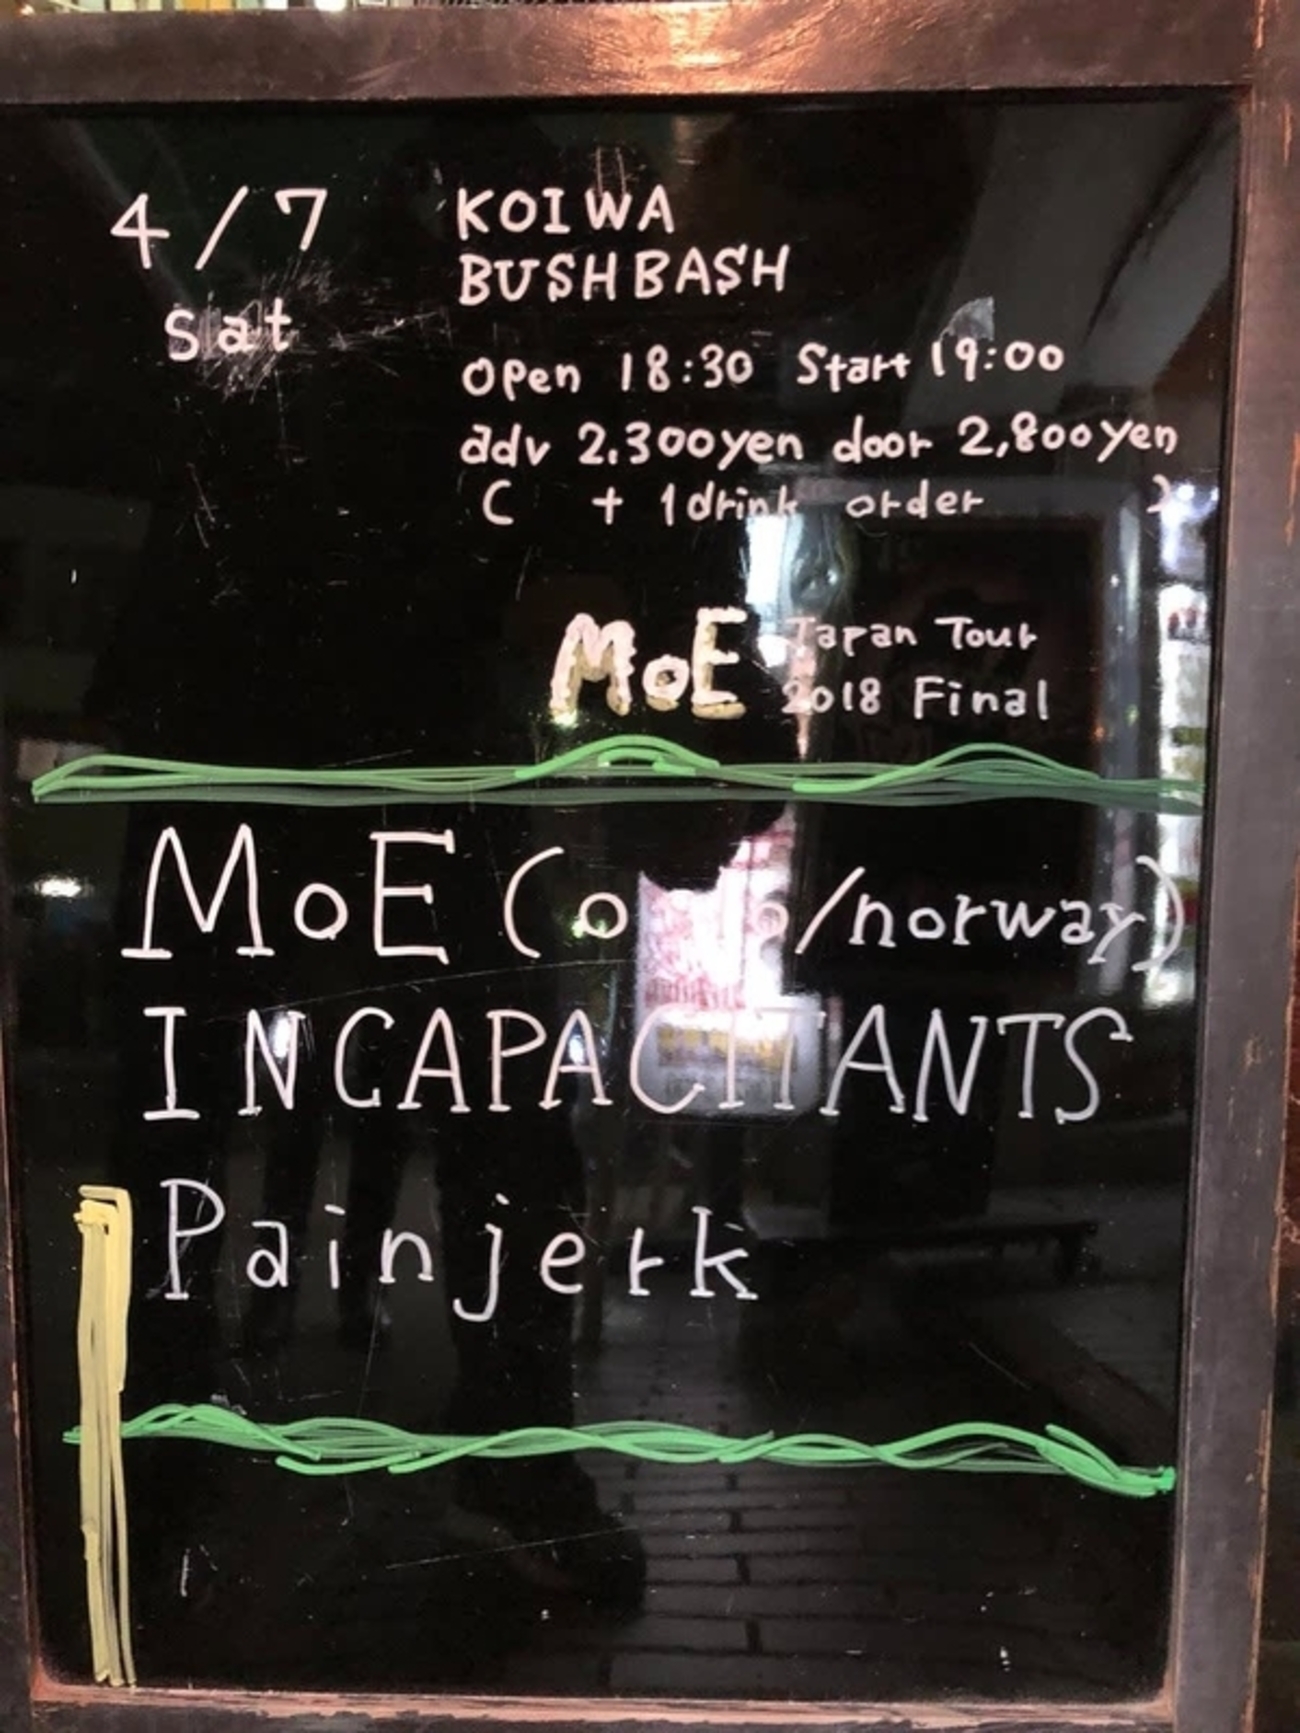 4/7
Sat
KOIWA
BUSHBASH
open 18:30 Start 19:00
adv 2,300yen door 2,800yen
( + 1drink order )
MoE Japan Tour
2018 Final
MoE ( /norway)
INCAPACITANTS
Painjerk